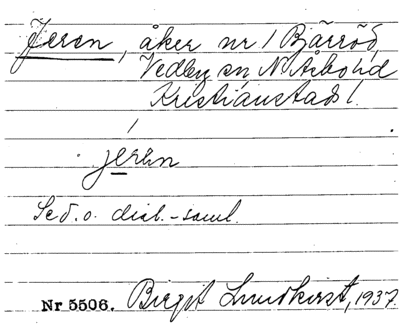 Jeren, åker nr 1 Bjärröd,
Vedby sn, N. Åsbo hd
Kristianstads l.
jerən
Se d. o. dial.-saml.
Nr 5506. Birgit Lundkvist, 1937